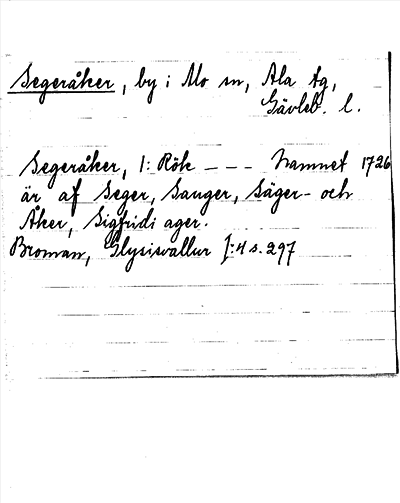 Segeråker, by i Mo sn, Ala tg,
Gävleb. l.
Segeråker, 1: Rök _ _ _ Namnet 1726
är af Seger, Sauger, Säger- och
Åker, Sigfridi ager.
Broman, Glysisvallur I:4 s. 297